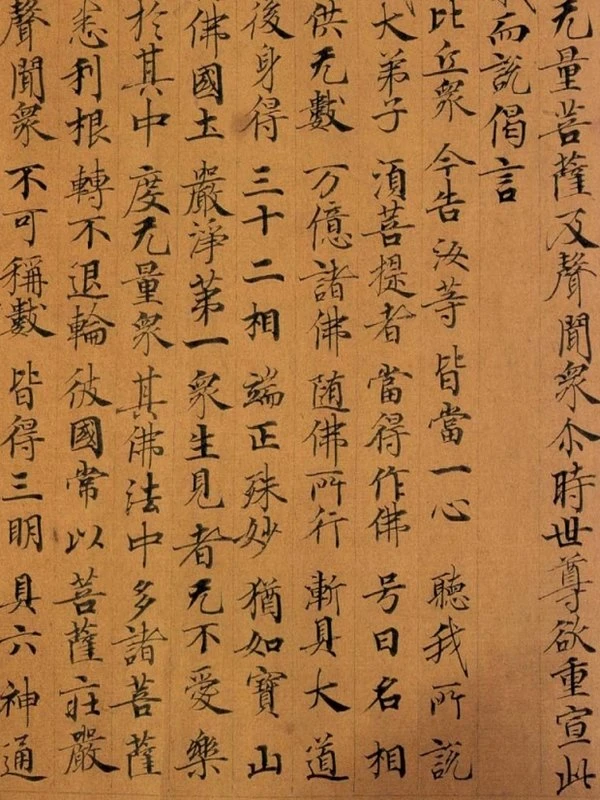 无量菩薩及聲聞衆尒時世尊欲重宣此
而說偈言
比丘衆 今告汝等 皆當一心 聽我所說
大弟子 須菩提者 當得作佛 号曰名相
供无數 万億諸佛 随佛所行 漸具大道
後身得 三十二相 端正殊妙 猶如寶山
佛國土 嚴淨第一 衆生見者 无不愛樂
於其中 度无量衆 其佛法中 多諸菩薩
悉利根 轉不退輪 彼國常以 菩薩莊嚴
聲聞衆 不可稱數 皆得三明 具六神通